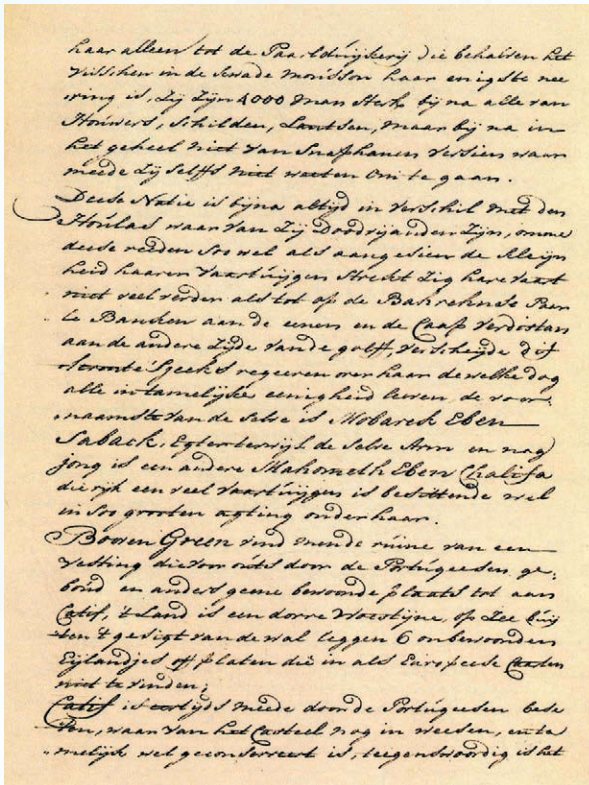 haar alleen tot de Paarlduijkerij die behalven het
visschen in de
haar enigste nee
ring is, Zij Zijn 4000 man sterk bij na alle van
Houwers, Schilden, Lantsen, maar bij na in
het geheel niet van Snaphanen versien waar
meede Zij selfs niet weeten om te gaan.
Deese Natie is bijna altijd in verschil met den
Houlas waar van Zij Doodvijanden Zijn, om
deese reeden soo wel als aangesien de kleijn
heid haaren vaartuijgen strekt Zig hare vaart
niet veel verder als tot op de Bahrehnse Paar
le Banken aan de eenen en de Caap Verdistan
aan de andere Zijde van de golff, verscheijde dif
Sjeeks regeeren over haar dewelke dog
alle in tamelijke eenigheid leeven, de voor
naamste van de selve is Mobarek Eben
Saback, Egter terwijl de selve Arm en nog
jong is een andere Mahometh Eben Chalifa
die rijk en veel vaartuijgen is besittende wel
in soo grooten agting onder haar.
Booven Green vind men de ruine van een
vesting die voor outs door de Portugeesen ge,
boud en anders geene bewoonde plaats tot aan
Catif, 't Land is een dorre Woestijne, op Zee buij
ten 't gesigt van de wal leggen 6 onbewoonden
Eijlandjes off platen die in alle Europeese Caarten
niet te vinden;
Catif is eertijds meede door de Portugeesen bese
ten, waar van het Casteel nog in weesen, en ta
melijk wel geconserveert is, teegenswoordig is het